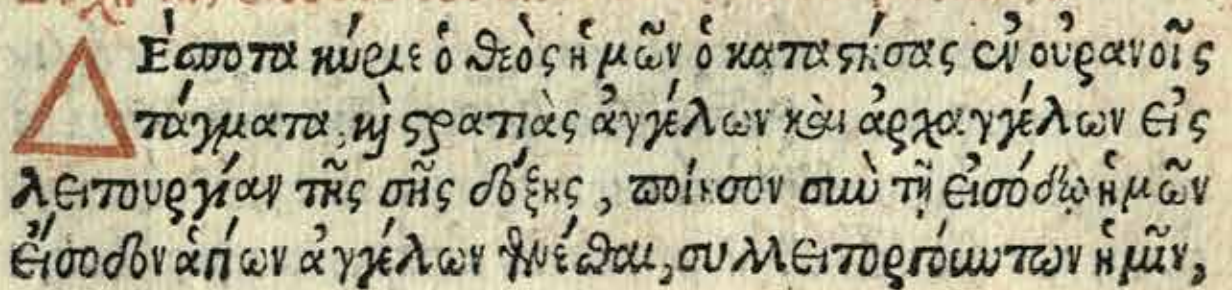 Δέσποτα κύριε ὁ θεὸς ἡμῶν ὁ καταστήσας ἐν οὐρανοῖς
τάγματα, καὶ στρατιὰς ἀγγέλων καὶ ἀρχαγγέλων εἰς
λειτουργίαν τῆς σῆς δόξης, ποίησον σὺν τῇ εἰσόδῳ ἡμῶν
εἴσοδον ἁγίων ἀγγέλων γενέσθαι, συλλειτουργούντων ἡμῖν,